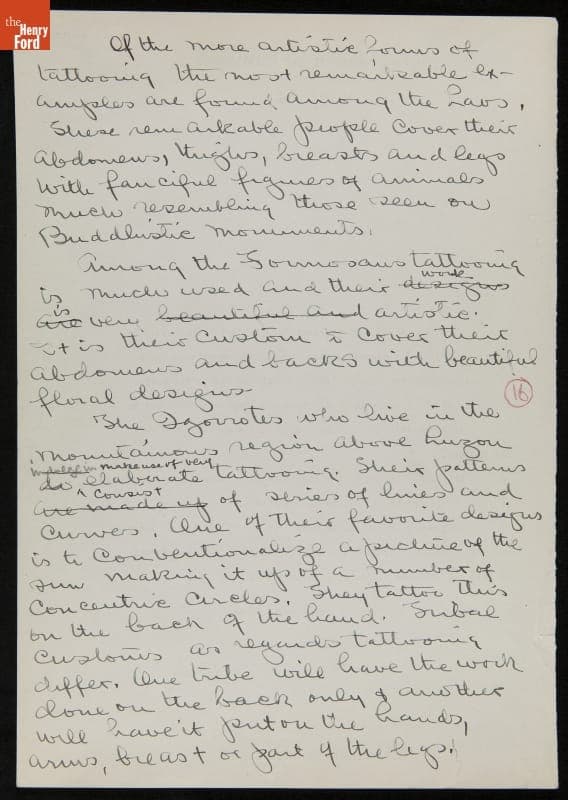 the
Henry
Ford
Of the more artistic forms of
tattooing the most remarkable ex-
amples are found among the Laos.
These remarkable people cover their
abdomens, thighs, breasts and legs
with fanciful figures of animals
much resembling those seen on
Buddhistic monuments.
Among the Formosans tattooing
is much used and their designs work
are is very beautiful and artistic.
It is their custom to cover their
abdomens and backs with beautiful
floral designs.
16
The Igorrotes who live in the
mountainous region above Luzon
indulge in make use of very
do elaborate tattooing. Their patterns
consist
are made up of series of lines and
curves. One of their favorite designs
is to conventionalize a picture of the
sun making it up of a number of
concentric circles. They tattoo this
on the back of the hand. Tribal
customs as regards tattooing
differ. One tribe will have the work
done on the back only & another
will have it put on the hands,
arms, breast or part of the legs.